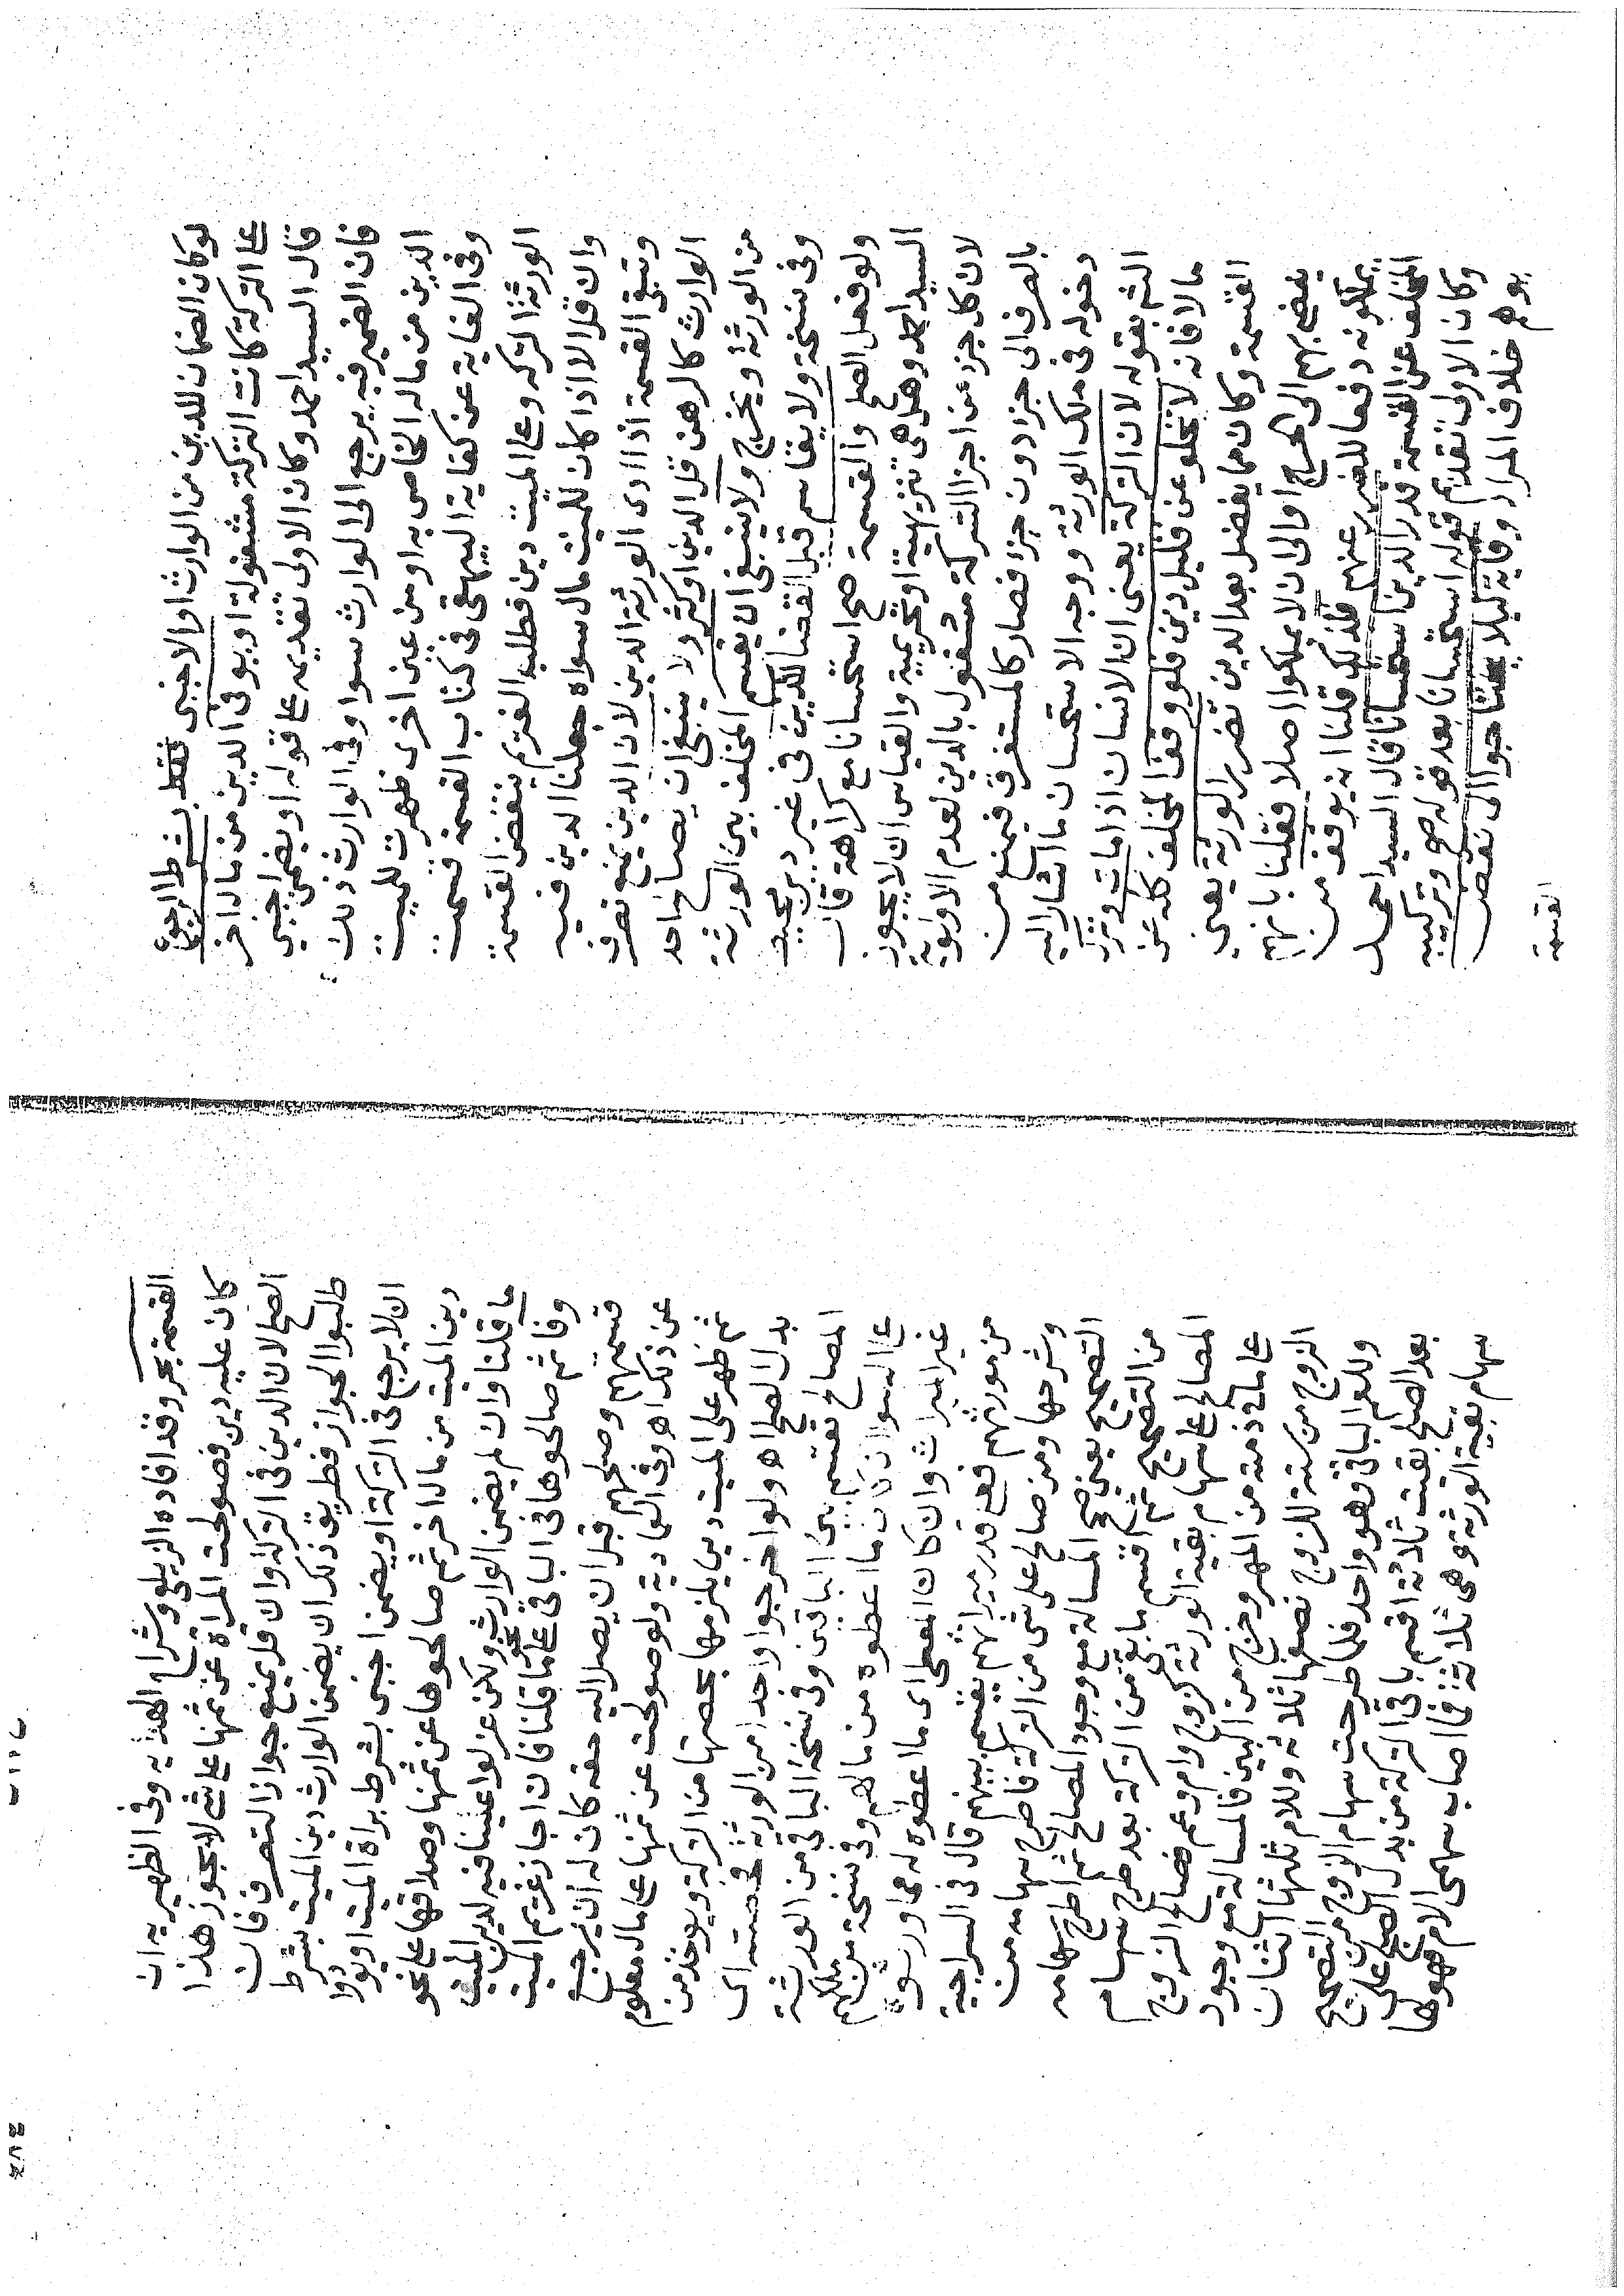 لوكان الضمان للدين من الوارث او الاجنبى فقط بشرط الرجوع
عا التركة كانت التركة مشغولة او يوفى الدين من مال اخر
قال السيد احمد وكان الاولى تقديمه عا قوله او يضمن اجنبي
فان الضمير فيه يرجع الى الوارث سوا وفى الوارث ذلك
الدين من ماله الخاص به او من عين اخرى ظهرت للميت
وفى الغاية عن كفاية البيهقى فى كتاب القسمة قسمت
الورثة التركه وعا الميت دين فطلب الغريم ينقض القسمة
وان قلا الا اذا كان للميت مال سواه جعلنا الدين فيه
وتبقى القسمة اذا ادى الورثة الدين لان الدين يمنع تصرف
الوارث كالرهن قل الدين او كثر ولا ينبغى ان يصالح احد
من الورثة ويخرج ولا ينبغى ان يقسم المخلف بين الورثة
وفى نسخة ولا يقاسم قبل القضا للدين فى غير دين محيط
ولو فعل الصلح والقسمة صح استحسانا مع كراهة قال
السيد احمد وهل هى تنزيهية او تحريمية والقياس ان لا يجوز
لان كل جزء من اجزا التركة مشغول بالدين لعدم الاولوية
بالصرف الى جزا دون جزا فصار كالمستغرق فيمنع من
دخوله فى ملك الورثة ووجه الاستحسان ما اشار اليه
الثم بقوله لان التركة يعنى ان الانسان اذا مات وترك
مالا فانه لا تخلو عن قليل دين فلو وقف المخلف كله عن
القسمة وكان مما يفضل بعد الدين تضرر الورثة يعنى
يفضى بهم الى الحرج او الى ان لا يملكوا اصلا فقلنا بانهم
يملكونه دفعا للضرر عنهم فلذلك قلنا انه يوقف من
المخلف عن القسمة قدر الدين استحسانا قال السيد احمد
وكان الاولى تقديم قوله استحسانا بعد قوله صح وتركيبه
يوهم خلاف المراد وقاية ليلا يحتاجوا الى نقض
القسمة
القسمة بحر وقد افاده الزيلعى وشراح الهدايه وفى الظهيريه ان
كان عليه دين فصولحت المراة عن ثمنها عا شى لا يجوز هذا
الصلح لان الدين فى التركة وان قل يمنع جواز التصرف فان
طلبوا الجواز فطريق ذلك ان يضمن الوارث دين الميت بشرط
ان لا يرجع فى التركة او يضمن اجنبى بشرط براة الميت او يؤدوا
دين الميت من مال اخر ثم صالحوها عن ثمنها وصداقها عا نحو
ما قلنا وان لم يضمن الوارث ولكن عزلوا عينا فيه لدين الميت
وفا ثم صالحوها فى الباقى عا نحو ما قلنا فان اجاز غريم الميت
قسمتهم وصلحهم قبل ان يصل اليه حقه كان له ان يرجع
عن ذلك اهـ وفى العمادية ولو صولحت عن ثمنها عا مال معلوم
ثم ظهر على الميت دين يلزمها بحصتها من التركة ويوخذ من
بدل الصلح اهـ ولو اخرجوا واحدا من الورثة فحصته اى
المصالح تقسم بين الباقين وفى نسخة الباقى من الورثة
عا السوا ان كان ما اعطوه من مالهم وفى نسخة من ملكهم
غير الميراث وان كان المعطى اى ما اعطوه له مما ورثوه
من مورثهم فعا قدر ميراثهم يقسم بينهم قال فى السراجية
وشرحها ومن صالح على شى من التركة فاطرح سهامه من
التصحيح يعنى صحح المسالة مع وجود المصالح ثم اطرح سهامه
من التصحيح ثم اقسم ما بقى من التركة بعد طرح سهام
المصالح عا سهام بقية الورثة كزوج وام وعم فصالح الزوج
عا ما فى ذمته من المهر وخرج من البين فالمسالة مع وجود
الزوج من ستة للزوج نصفها ثلاثه وللام ثلثها اثنان
وللعم الباقى وهو واحد فلما طرحت سهام الزوج من التصحيح
بعد الصلح بقيت ثلاثة اقسم باقى التركة من بدل الصلح على
سهام بقية الورثة وهى ثلاثة فما اصاب سهمى الام فهو لها